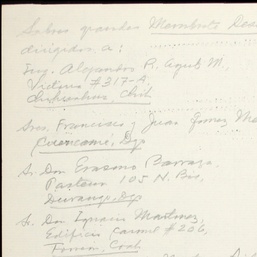 Sobres grandes Membrete
dirigidos a:
Ing. Alejandro P.
Victoria #317-A,
Chihuahua, Chih
Sres. Francisco y Juan Gomez
Cuencamé, Dgo
Sr. Don Erasmo Barraza,
Pasteur 105 N. Bis,
Durango, Dgo
Sr. Don Ignacio Martinez,
Edificio #206,
Torreon, Coah